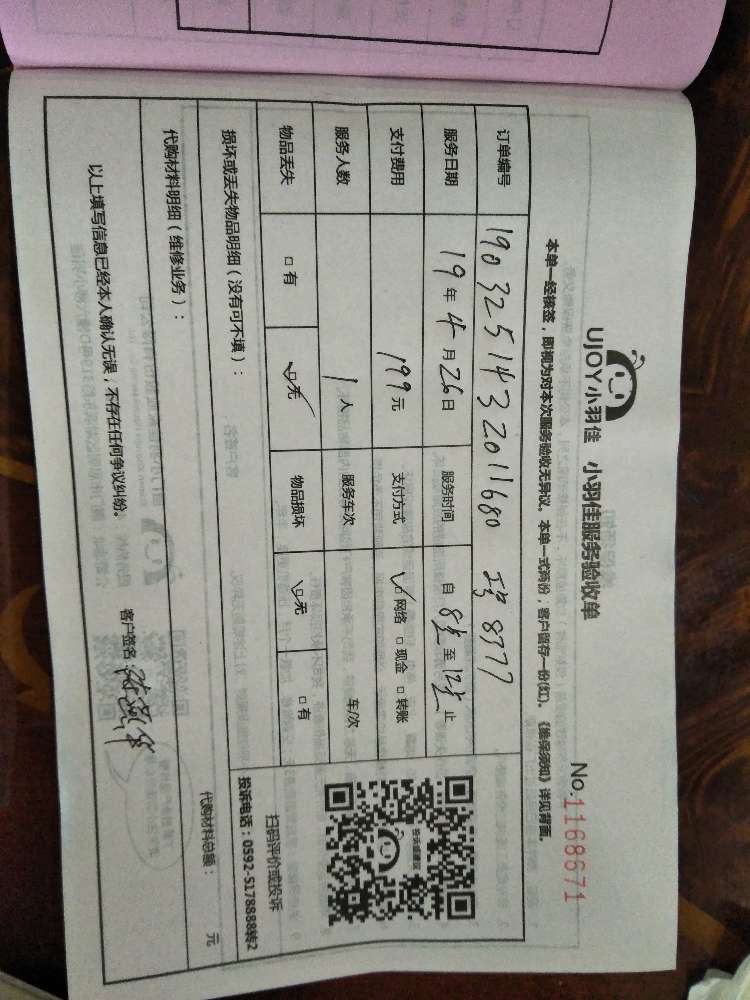 UJOY小羽佳 小羽佳服务验收单
No.1168671
本单一经核签，即视为对本次服务验收无异议。本单一式两份，客户留存一份(红)。《维保须知》详见背面。
订单编号 1903251432011680 工号8777
服务日期 19年4月26日 服务时间 自8点至12点止
支付费用 199元 支付方式 ☑网络 □现金 □转账
服务人数 1人 服务车次 车/次
物品丢失 □有 ☑无 物品损坏 ☑无 □有
投诉建议
扫码评价或投诉
投诉电话：0592-5178888转2
损坏或丢失物品明细（没有可不填）：
代购材料明细（维修业务）：
代购材料总额： 元
以上填写信息已经本人确认无误，不存在任何争议纠纷。 客户签名: